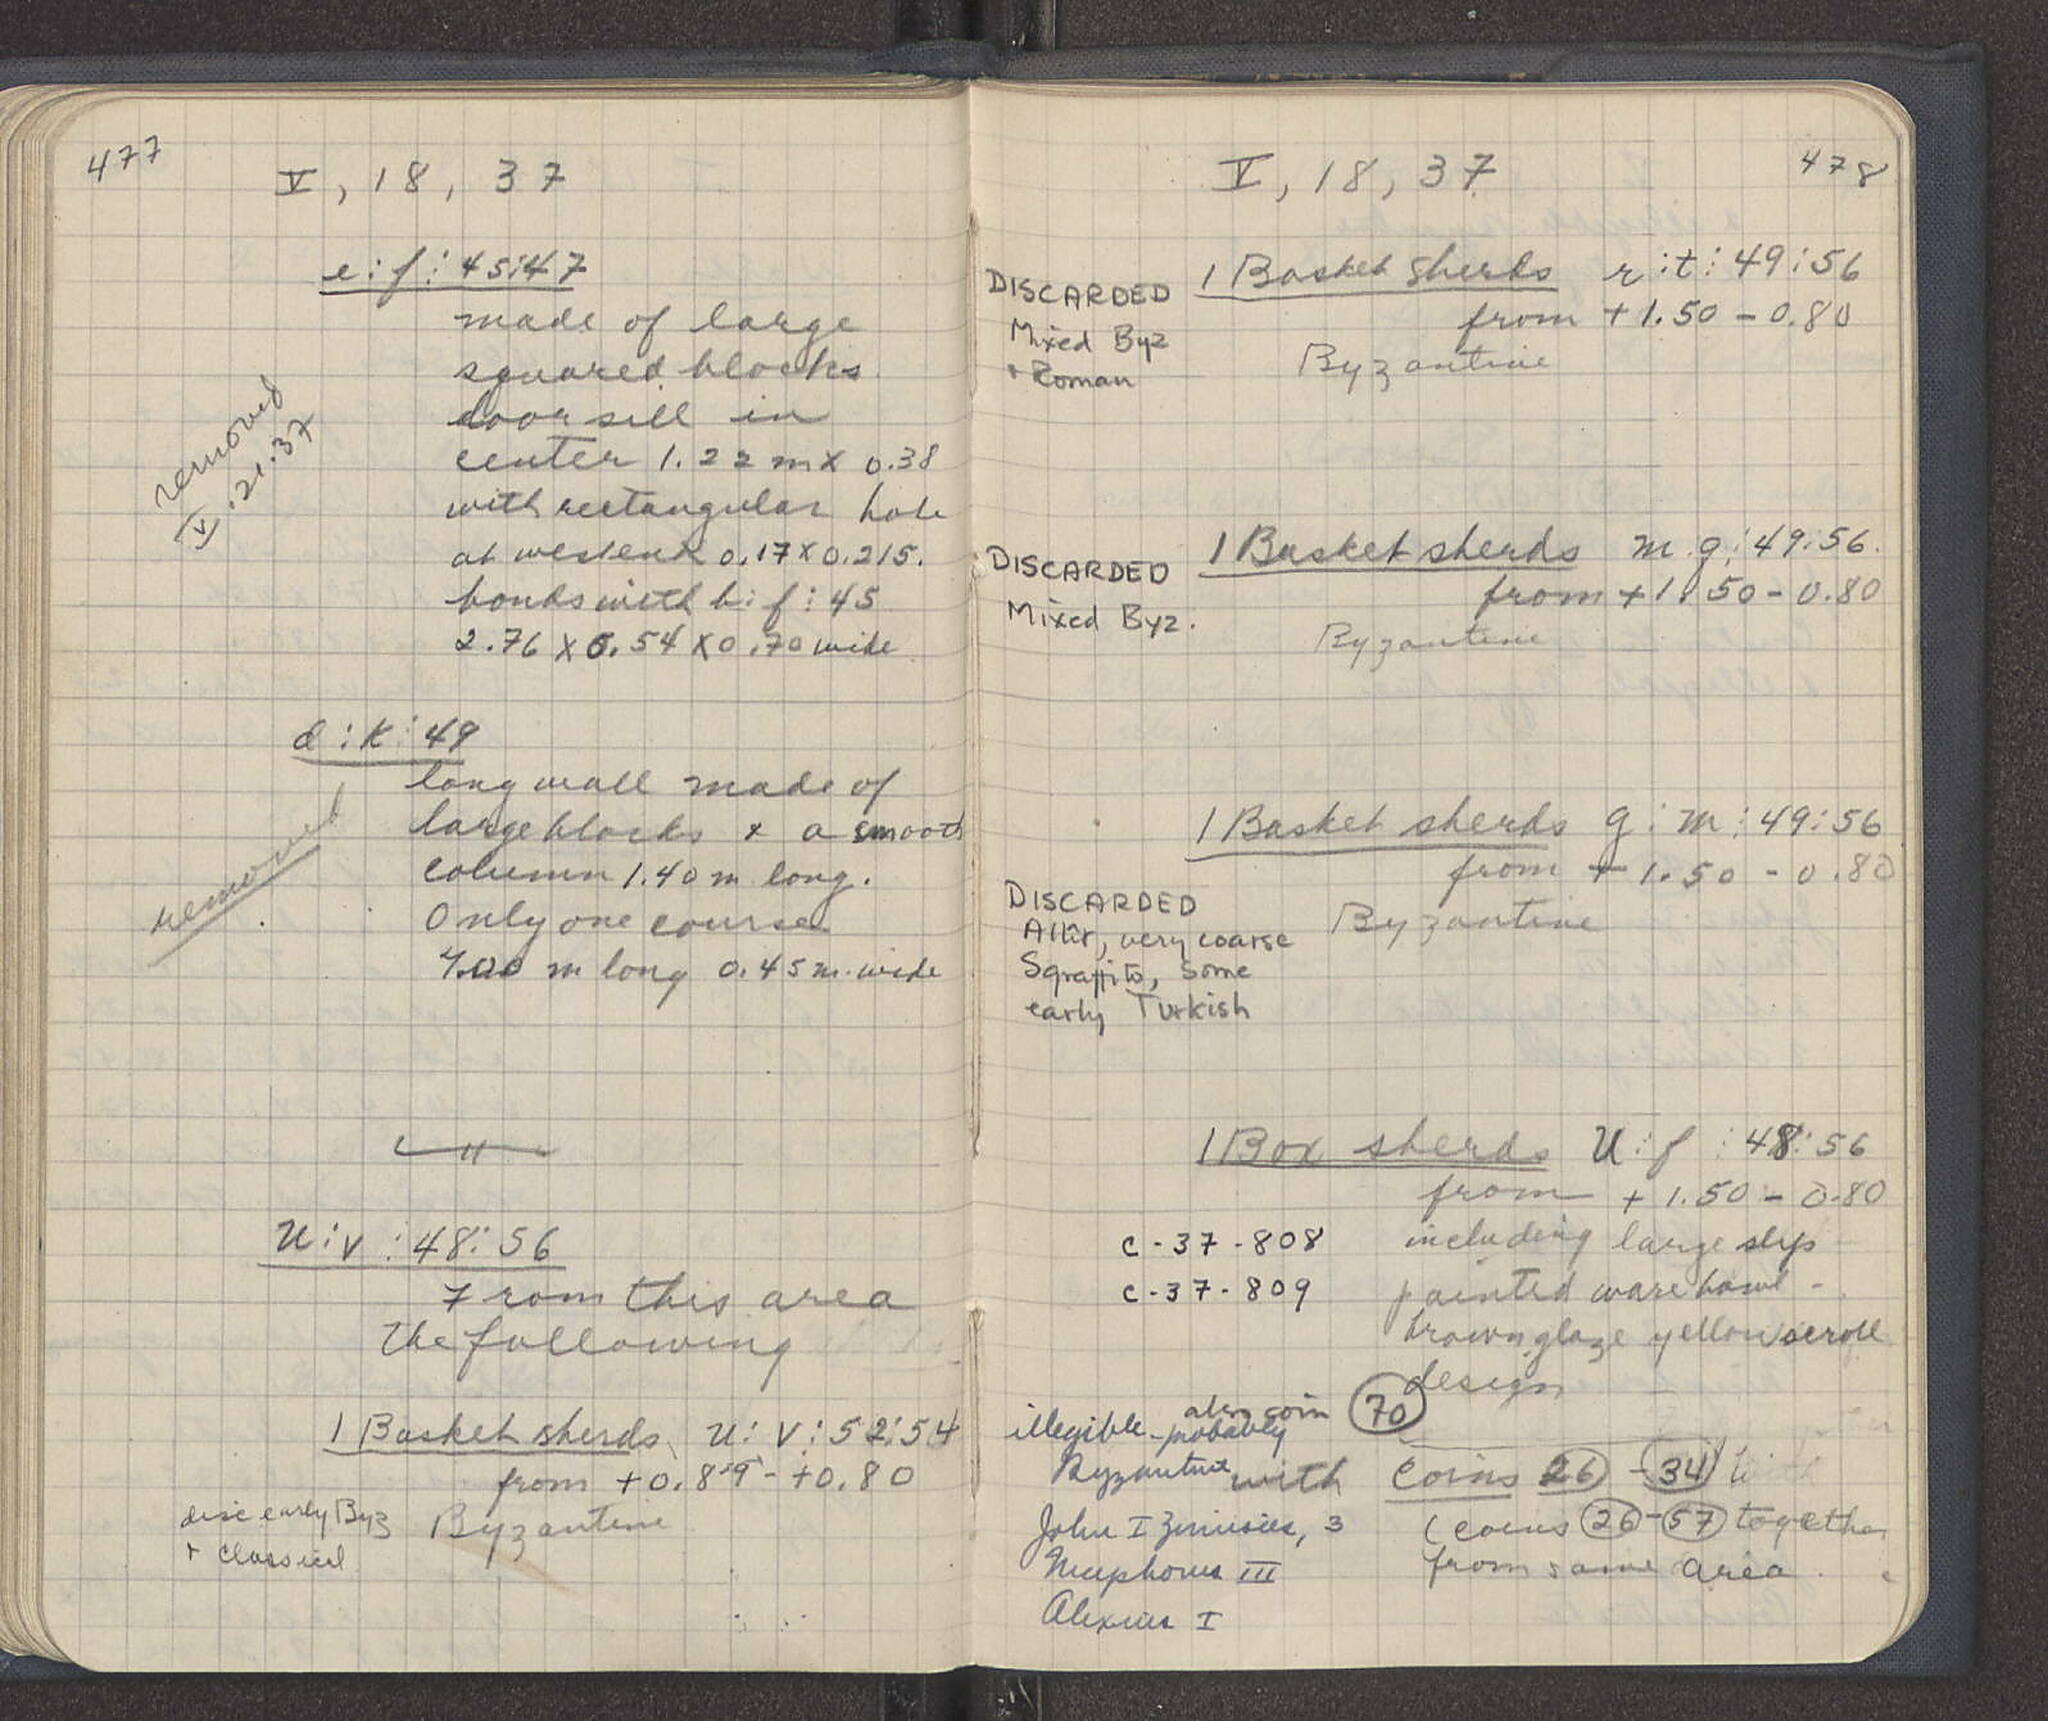 477
V, 18, 37
e:f:45:47
made of large
squared blocks
door sill in
center 1.22 m x 0.38
with rectangular hole
at west end 0.17 x 0.215.
bonds with b:f:45
2.76 x 0.54 x 0.70 wide
removed
V.21.37
d:k:49
long wall made of
large blocks + a smooth
column 1.40 m long.
Only one course
7.00 m long 0.45 m. wide
removed
u:v:48:56
From this area
the following
1 Basket sherds u:v:52:54
from +0.89 - +0.80
Byzantine
disc early Byz
+ classical
V, 18, 37
478
1 Basket Sherds r:t:49:56
from +1.50 - 0.80
Byzantine
DISCARDED
Mixed Byz
+ Roman
1 Basket sherds m.g:49:56.
from +1.50 - 0.80
Byzantine
DISCARDED
Mixed Byz.
1 Basket sherds g:m:49:56
from +1.50 - 0.80
Byzantine
DISCARDED
very coarse
Sgraffito, some
early Turkish
1 Box sherds u:f:48:56
from +1.50 - 0.80
C-37-808 including large slip
C-37-809 painted ware bowl -
brown glaze yellow scroll
design
also coin 70
illegible - probably
Byzantine
with coins 26 - 34
(coins 26 - 57 together
from same area.
John I Zimisces, 3
Nicephorus III
Alexius I